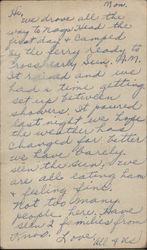 Mon.
Hi,
we drove all the
way to Nags Head the
first day & Camped
by the ferry ready to
cross early Sun. A.M.
It rained and we
had a time getting
set up between
showers. It poured
last night we hope
the weather has
changed for better
we have barely
seen the sun, &
are all eating ham
& feeling fine.
Not too many
people here. Have
seen 2 families from
Love All of Us